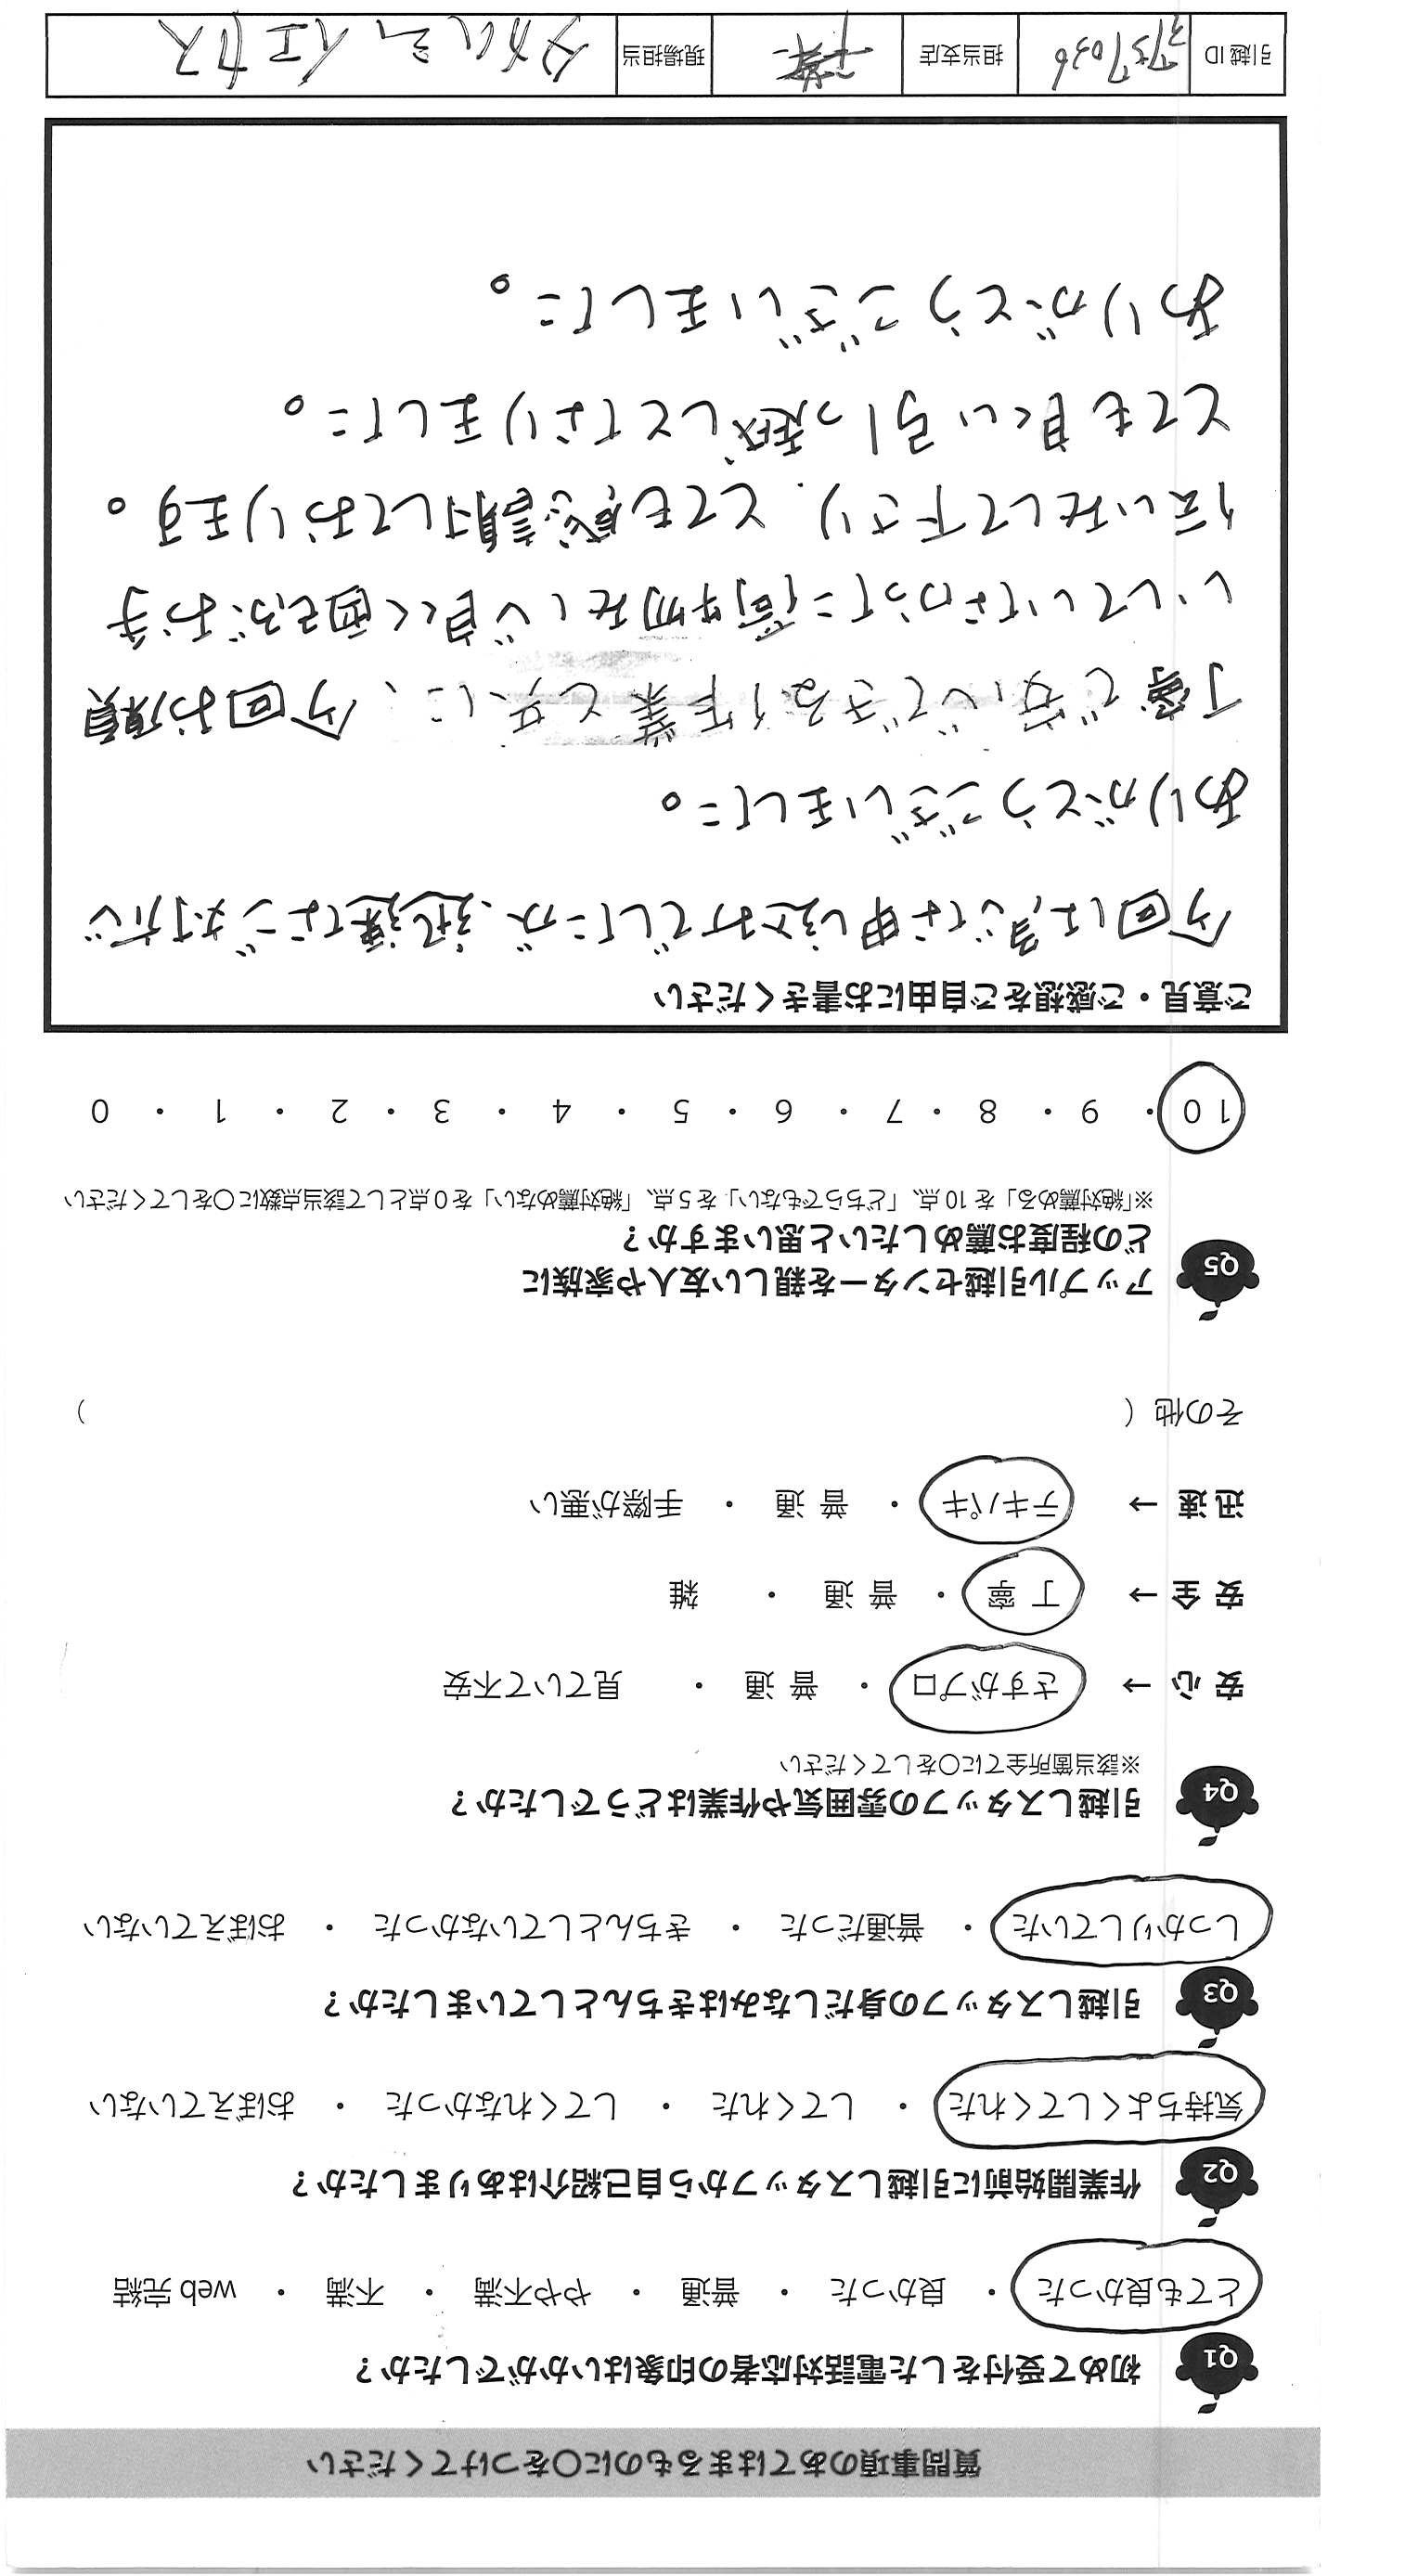 質問事項のあてはまるものに〇をつけてください
Q1 初めて受付をした電話対応者の印象はいかがでしたか？
とても良かった ・ 良かった ・ 普通 ・ やや不満 ・ 不満 ・ web 完結
Q2 作業開始前に引越しスタッフから自己紹介はありましたか？
気持ちよくしてくれた ・ してくれた ・ してくれなかった ・ おぼえていない
Q3 引越しスタッフの身だしなみはきちんとしていましたか？
しっかりしていた ・ 普通だった ・ きちんとしていなかった ・ おぼえていない
Q4 引越しスタッフの雰囲気や作業はどうでしたか？
※該当箇所全てに〇をしてください
安 心 → さすがプロ ・ 普 通 ・ 見ていて不安
安 全 → 丁 寧 ・ 普 通 ・ 雑
迅 速 → テキパキ ・ 普 通 ・ 手際が悪い
その他（ ）
Q5 アップル引越センターを親しい友人や家族に
どの程度お薦めしたいと思いますか？
※「絶対薦める」を 10 点、「どちらでもない」を 5 点、「絶対薦めない」を 0 点として該当点数に〇をしてください
10 ・ 9 ・ 8 ・ 7 ・ 6 ・ 5 ・ 4 ・ 3 ・ 2 ・ 1 ・ 0
ご意見・ご感想をご自由にお書きください
今回は急な申し込みでしたが、迅速なご対応
ありがとうございました。
丁寧で安心できる作業と共に、今回お願
いしていなかった荷物など良く気をくばりお手
伝いをして下さり、とても感謝しております。
とても良い引っ越しとなりました。
ありがとうございました。
引越 ID 担当支店 千葉 現場担当